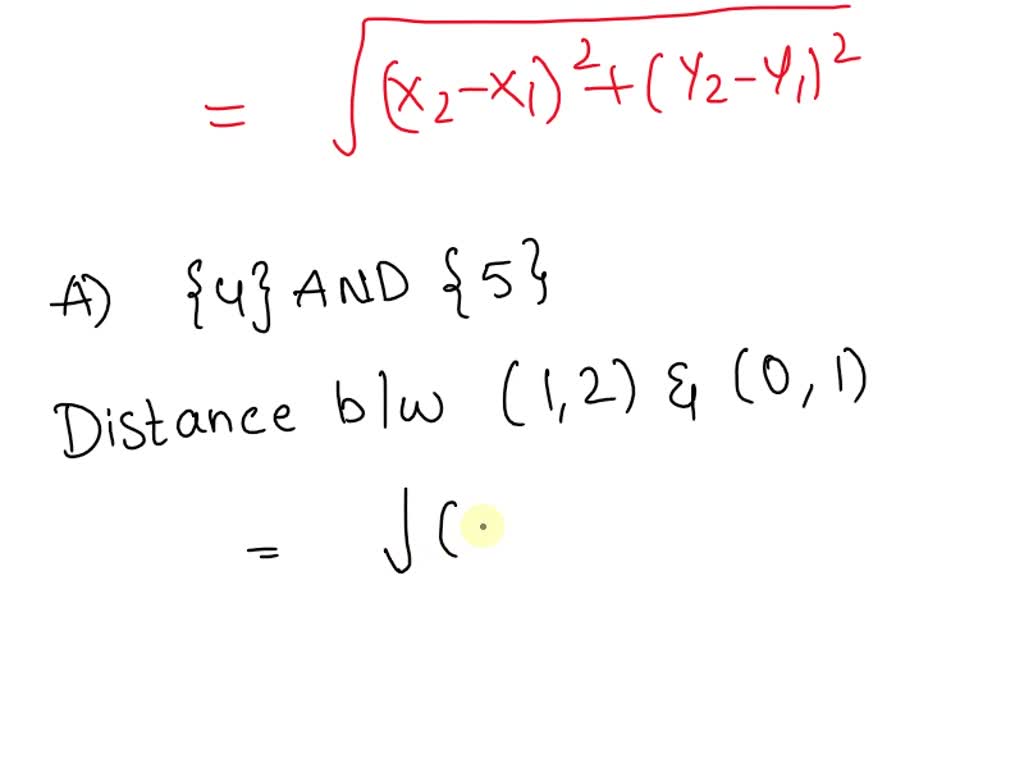 = √(x₂-x₁)²+(y₂-y₁)²
A) {4} AND {5}
Distance b/w (1,2) & (0,1)
= √(